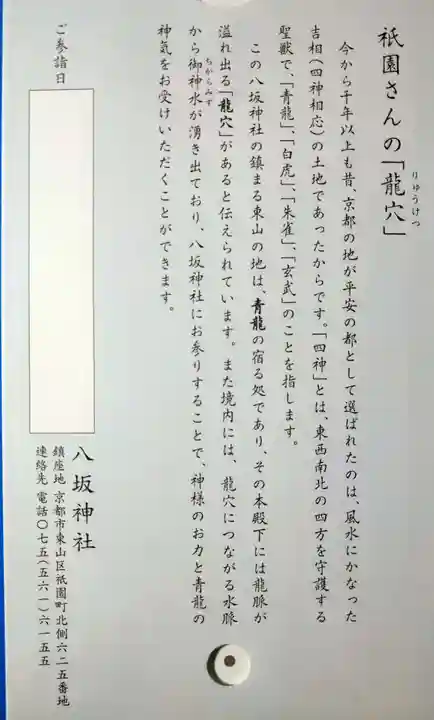 祇園さんの「龍穴」
りゅうけつ
今から千年以上も昔、京都の地が平安の都として選ばれたのは、風水にかなった
吉相(四神相応)の土地であったからです。「四神」とは、東西南北の四方を守護する
聖獣で、「青龍」、「白虎」、「朱雀」、「玄武」のことを指します。
この八坂神社の鎮まる東山の地は、青龍の宿る処であり、その本殿下には龍脈が
溢れ出る「龍穴」があると伝えられています。また境内には、龍穴につながる水脈
から御神水が湧き出ており、八坂神社にお参りすることで、神様のお力と青龍の
ちからみず
神気をお受けいただくことができます。
ご参詣日
八坂神社
鎮座地 京都市東山区祇園町北側六二五番地
連絡先 電話〇七五(五六一)六一五五